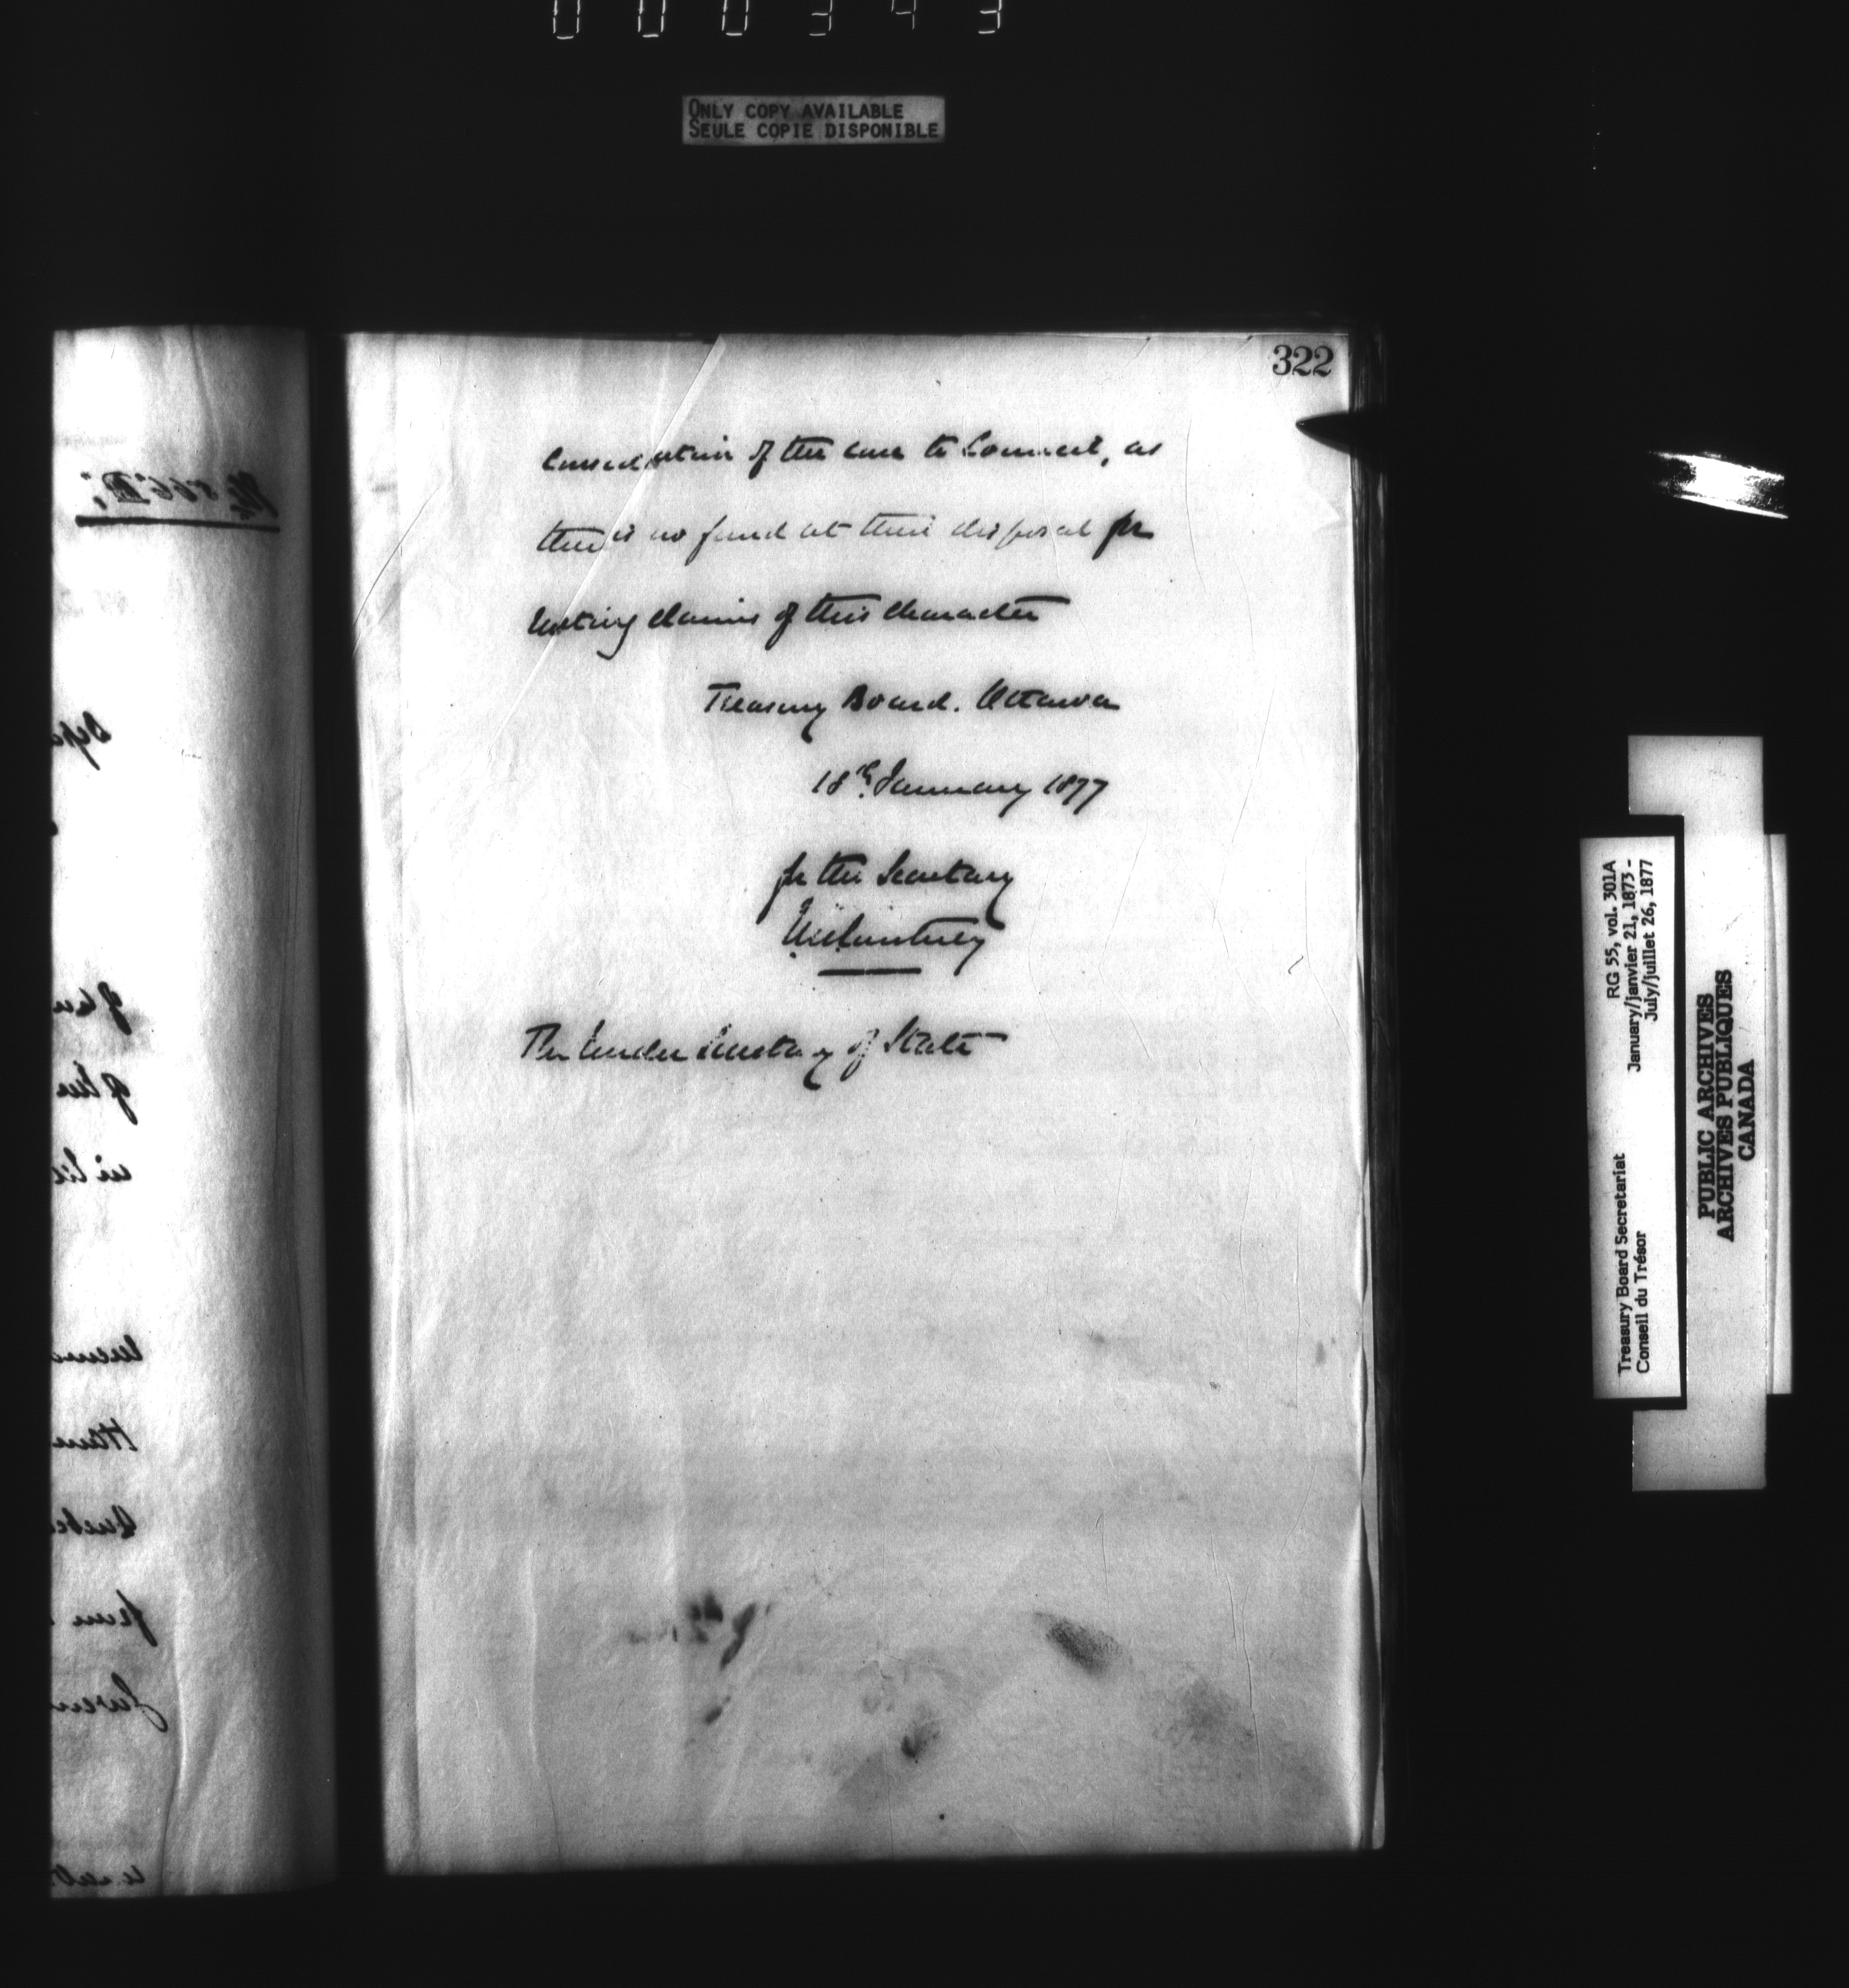 000343
ONLY COPY AVAILABLE
SEULE COPIE DISPONIBLE
322
Consideration of the case to Council, as
there is no fund at their disposal for
claims of this character
Treasury Board. Ottawa
18th January 1877
for the Secretary
The Under Secretary of State
RG 55, vol. 301A
January/janvier 21, 1873 -
July/juillet 26, 1877
Treasury Board Secretariat
Conseil du Trésor
PUBLIC ARCHIVES
ARCHIVES PUBLIQUES
CANADA